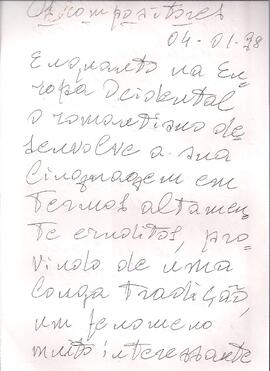 Os compositores
04-01-98
Enquanto na Eu-
ropa Ocidental
o romantismo de-
senvolve a sua
linguagem em
termos altamen-
te eruditos, pro-
vindo de uma
longa tradição,
um fenomeno
muito interessante